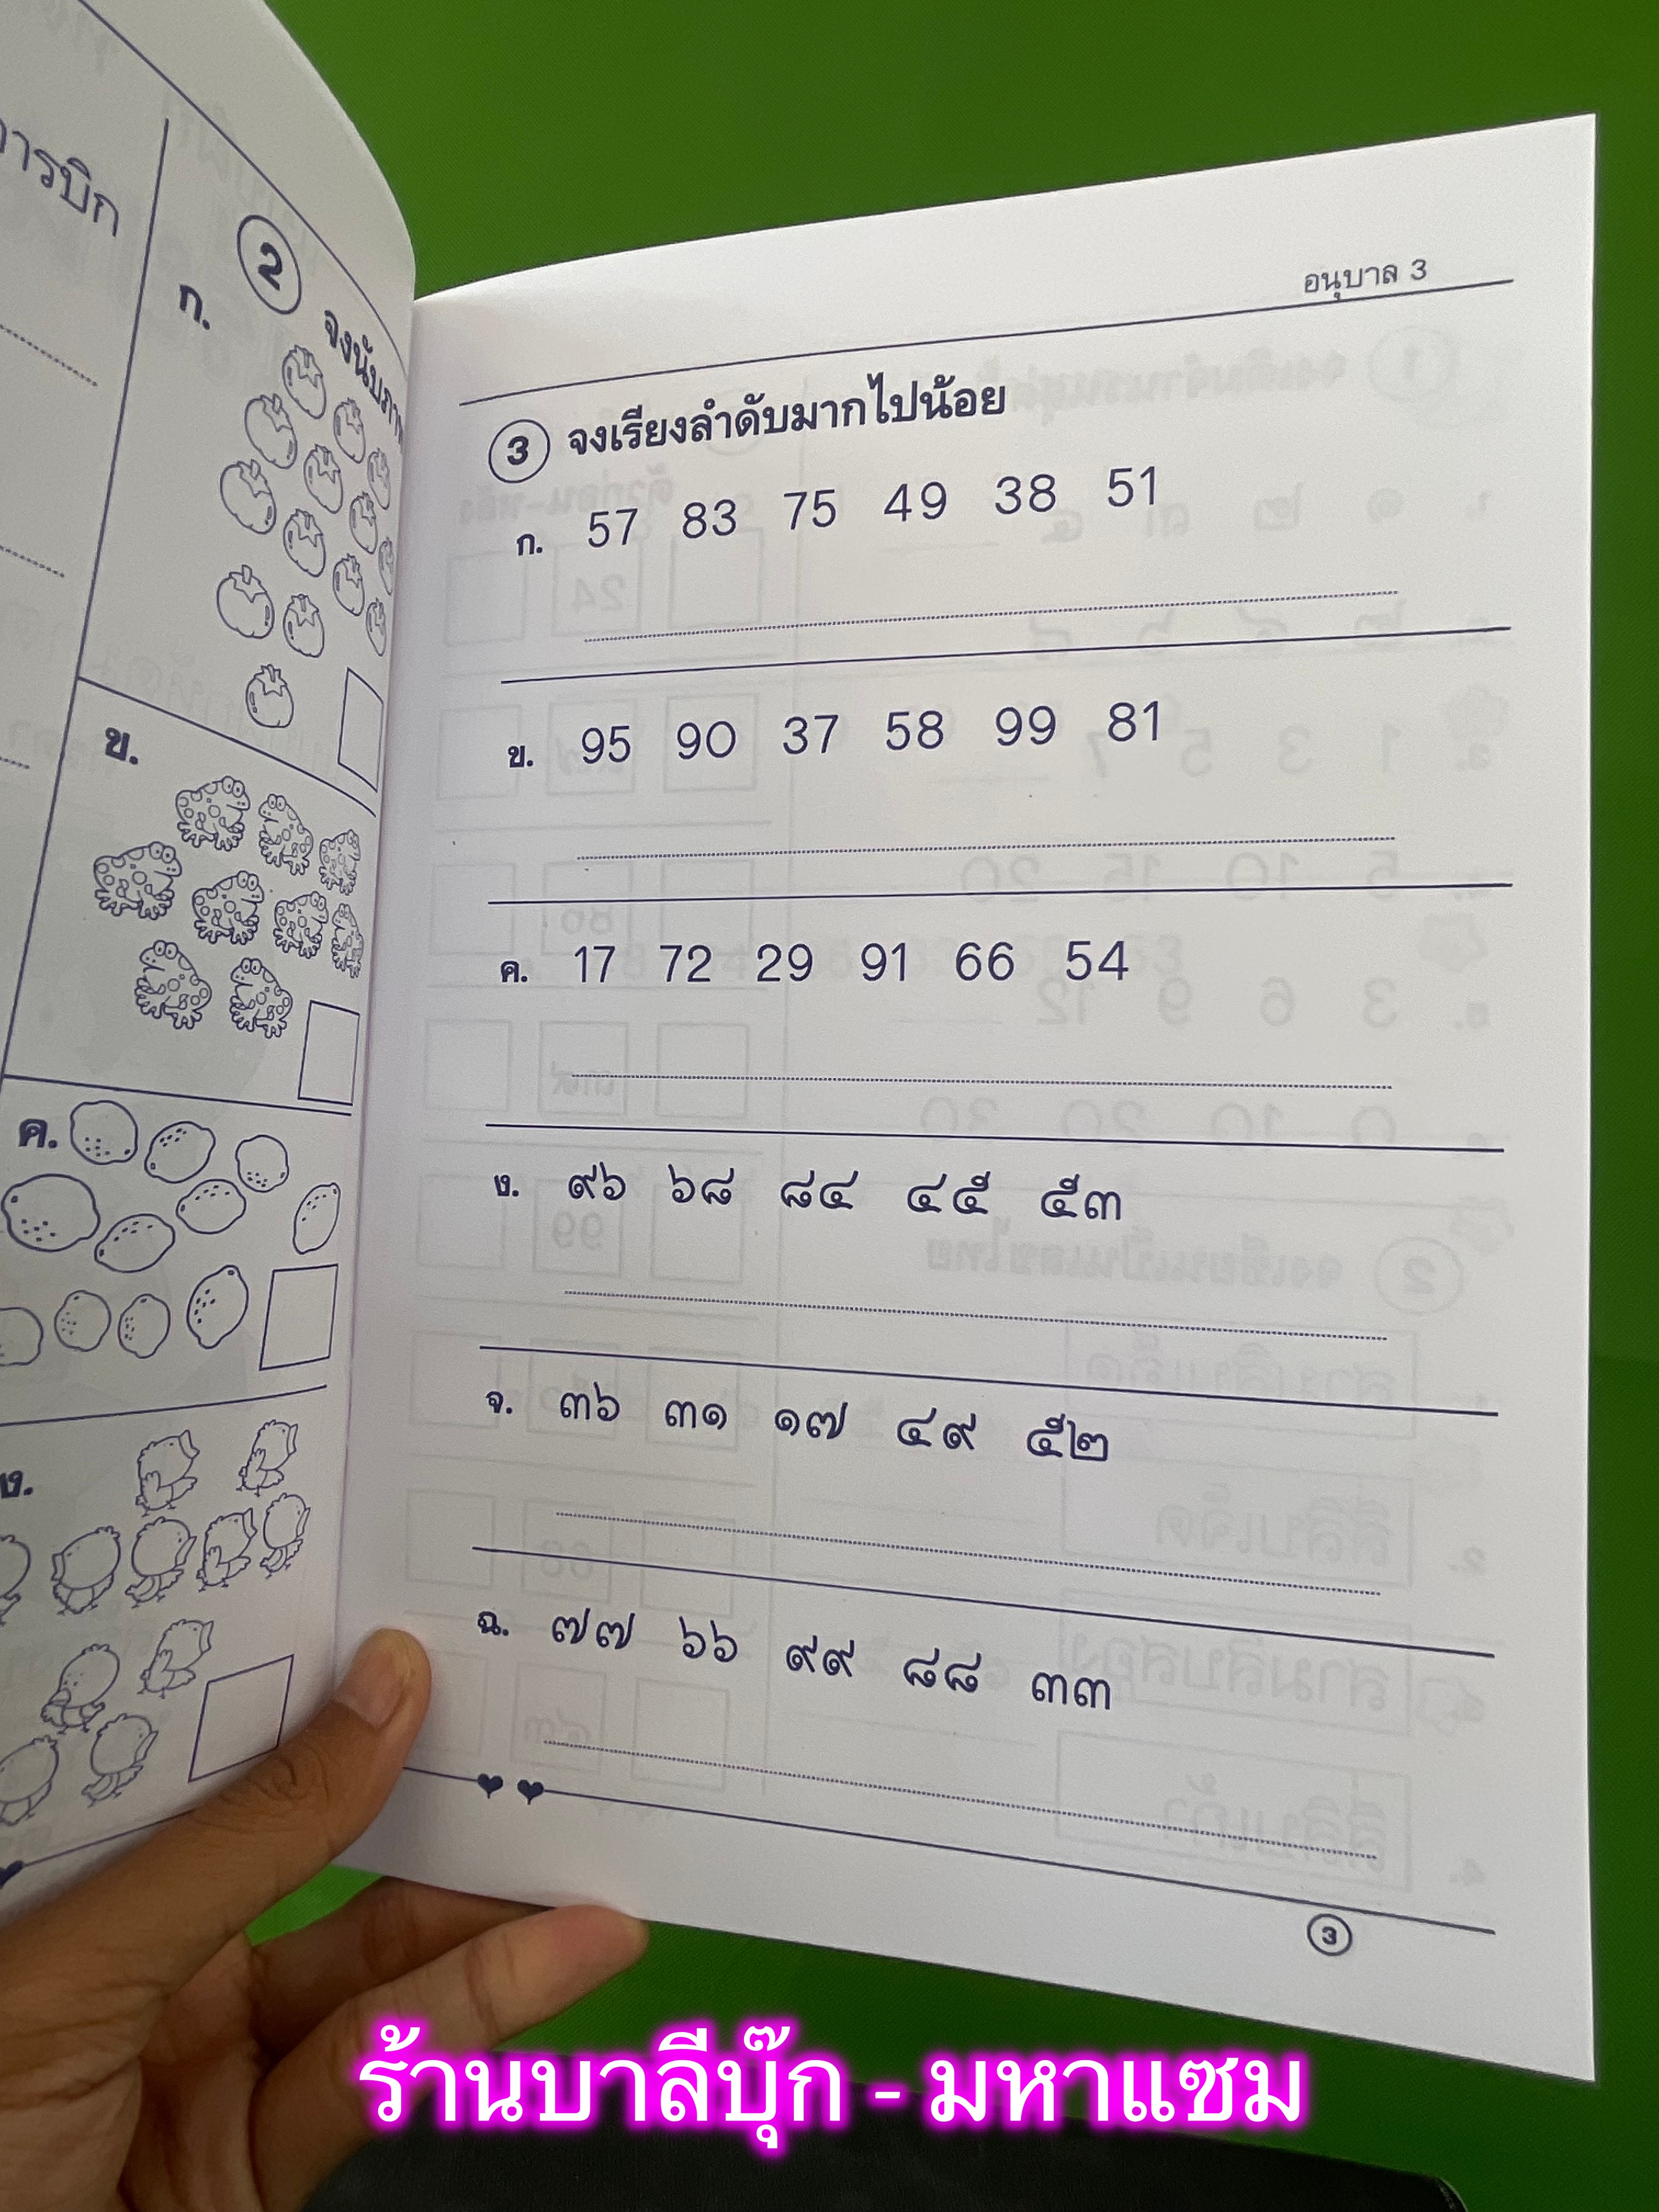 ารบิก
2 จงนับภา
ก.
ข.
ค.
ง.
อนุบาล 3
3 จงเรียงลำดับมากไปน้อย
ก. 57 83 75 49 38 51
ข. 95 90 37 58 99 81
ค. 17 72 29 91 66 54
ง. ๙๖ ๖๘ ๘๔ ๔๕ ๕๓
จ. ๓๖ ๓๑ ๑๗ ๔๙ ๕๒
ฉ. ๗๗ ๖๖ ๙๙ ๘๘ ๓๓
3
ร้านบาลีบุ๊ก - มหาแซม